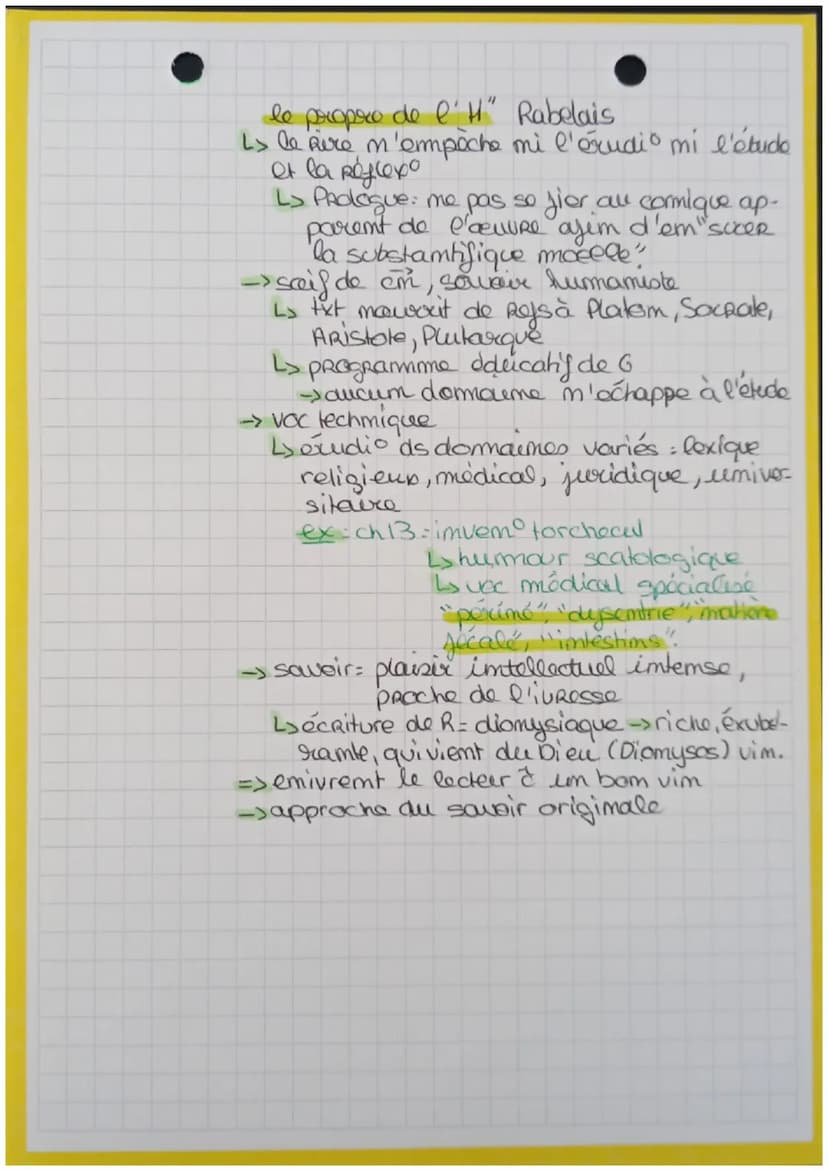 le propre de l'H" Rabelais
↳ le Rire n'empêche ni l'érudi° ni l'étude
et la Réflex°
↳ Prologue: ne pas se fier au comique ap-
parent de l'œuvre afin d'en "sucer
la substantifique moelle"
→ soif de , savoir humaniste
↳ txt nourrit de Refs à Platon, Socrate,
Aristote, Plutarque
↳ programme de G
→ aucun domaine n'échappe à l'étude
→ voc technique
↳ érudi° ds domaines variés : lexique
religieux, médical, juridique, univer-
sitaire
ex: ch 13 = inven° torchecul
↳ humour scatologique
↳ voc médical spécialisé
"périnée", "dysentrie", "matière
fécale", "intestins".
→ savoir = plaisir intellectuel intense,
proche de l'ivresse
↳ écriture de R = dionysiaque → riche, éxubé-
rante, qui vient du Dieu (Dionysos) vin.
=> enivrent le lecteur un bon vin
→ approche du savoir originale